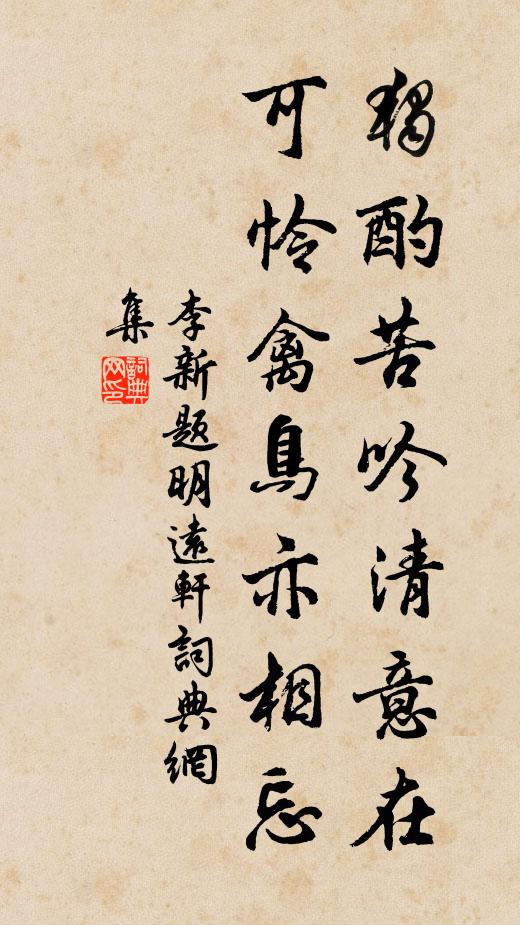 獨酌苦吟清意在
可怜禽鳥亦相忘
李新題明遠軒詞典網
集
詞典
网印